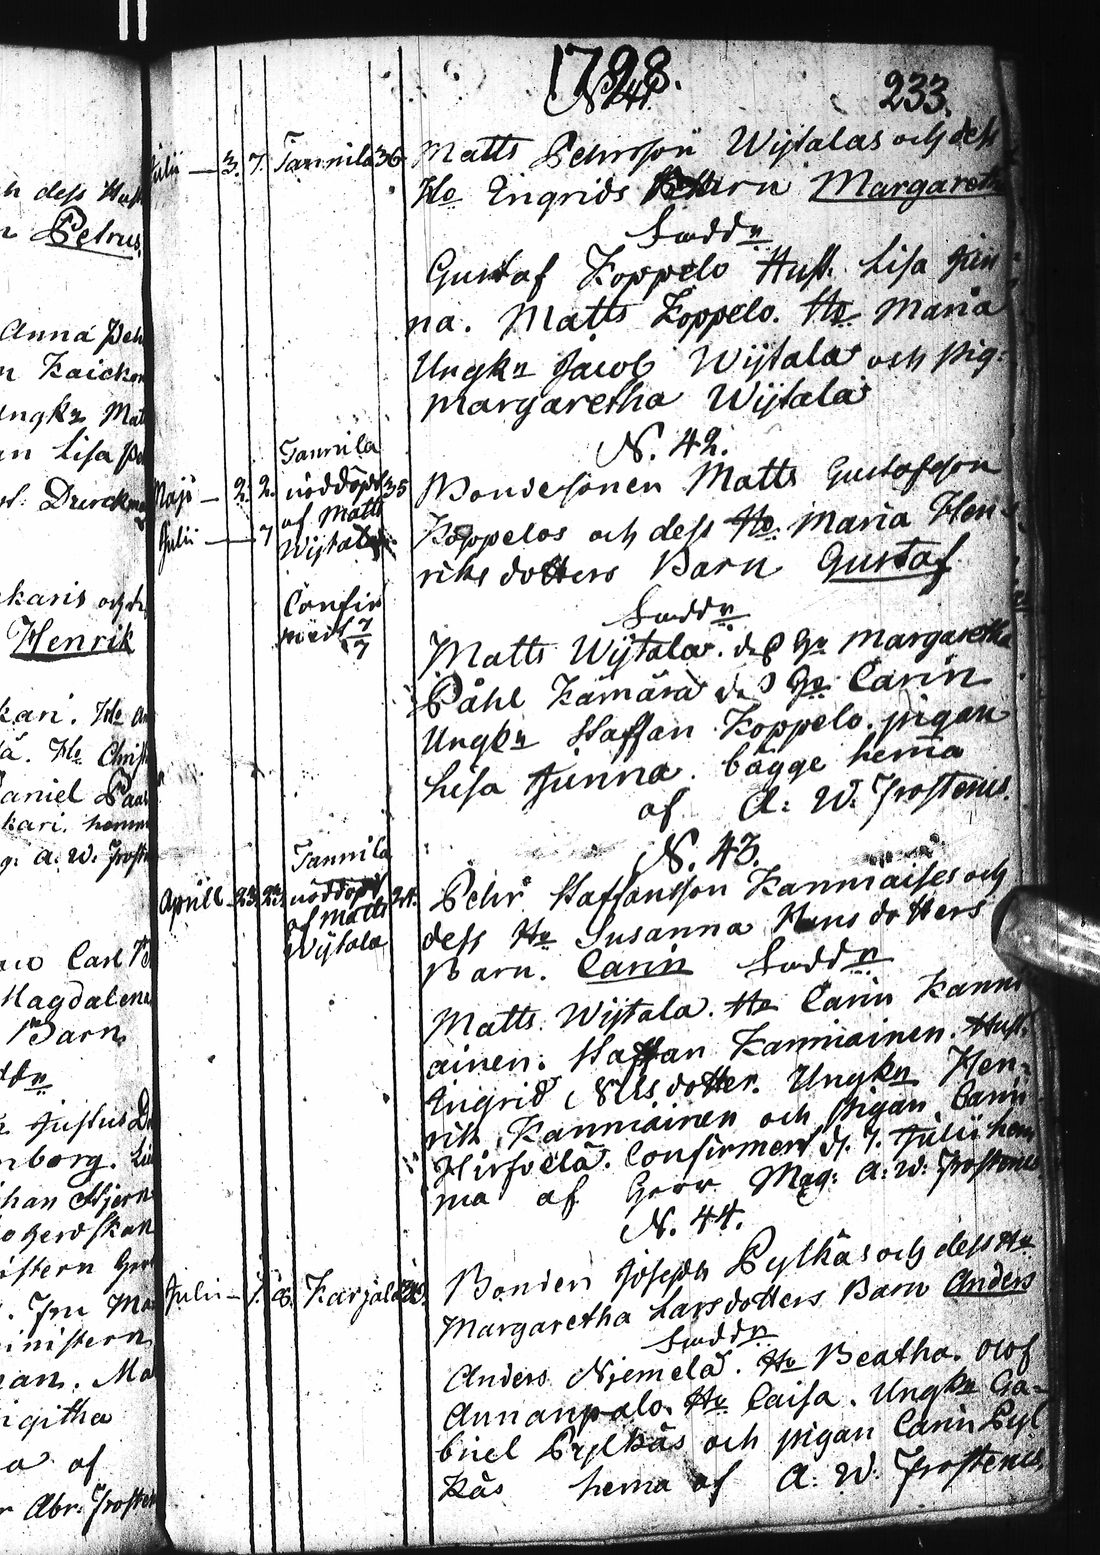 1798.
233.
N. 41.
Julii 3. 7. Tannila 36 Matts Pehrsson Wijtalas och dess
Ho Ingrids Barn Margareth
Faddr
Gustaf Koppelo Hust. Lisa Jun
na. Matts Koppelo. Ho Maria
Ungkn Jacob Wijtala och pig:
Margaretha Wijtala
N. 42.
Maji 2. 2. Tannila
nöddöpt 35
af Matts
Julii 7 Wijtala
Confir
mer. d. 7/7
Bondesonen Matts Gustafsson
Koppelos och dess Ho. Maria Hen
riks dotters Barn Gustaf
Faddr
Matts Wijtala. dess Ho Margaretha
Påhl Kämärä dess Ho Carin
Ungkn Staffan Koppelo. pigan
Lisa Junna. bägge hema
af A: W: Frostenis.
N. 43.
Aprill 23. 24. Tannila
nöddöpt 24.
af Matts
Wijtala
Pehr Staffansson Kanniaises och
dess Ho Susanna Hans dotters
Barn. Carin Faddr
Matts Wijtala. Ho Carin Kanni
ainen. Staffan Kanniainen. Hust.
Ingrid Nils dotter. Ungkn Hen-
rik Kanniainen och pigan Carin
Hirfvelä. Confirmerd d. 7. Julii hem
ma af Herr Mag: A: W: Frostenis
N. 44.
Julii 7. 8. Karjala
Bonden Joseph Pylkäs och dess Ho
Margaretha Lars dotters Barn Anders
Faddr
Anders Niemelä. Ho Beatha. Olof
Annanpalo. Ho Caisa. Ungkn Ga-
briel Pylkäs och pigan Carin Pyl
käs hema af A: W: Frostenis.
n dess Hust
Petrus.
Anna Peh
n Kaicko
ungkn Mat
an Lisa Pe
Durckma
karis och
Henrik
kari. Ho An
Ho Christ
Daniel Paa
kari. hemm
g: A: W: Frost
Carl
Magdalena
Barn
Faddr
Justus
nborg.
Johan Stjern
Mo
ministern
man. Ma
Brigitha
a af
r Abr: Frosten